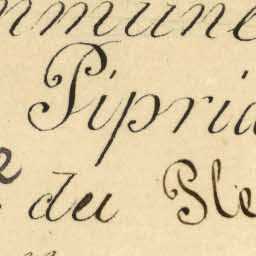 mmune
Pipria
e du Ple